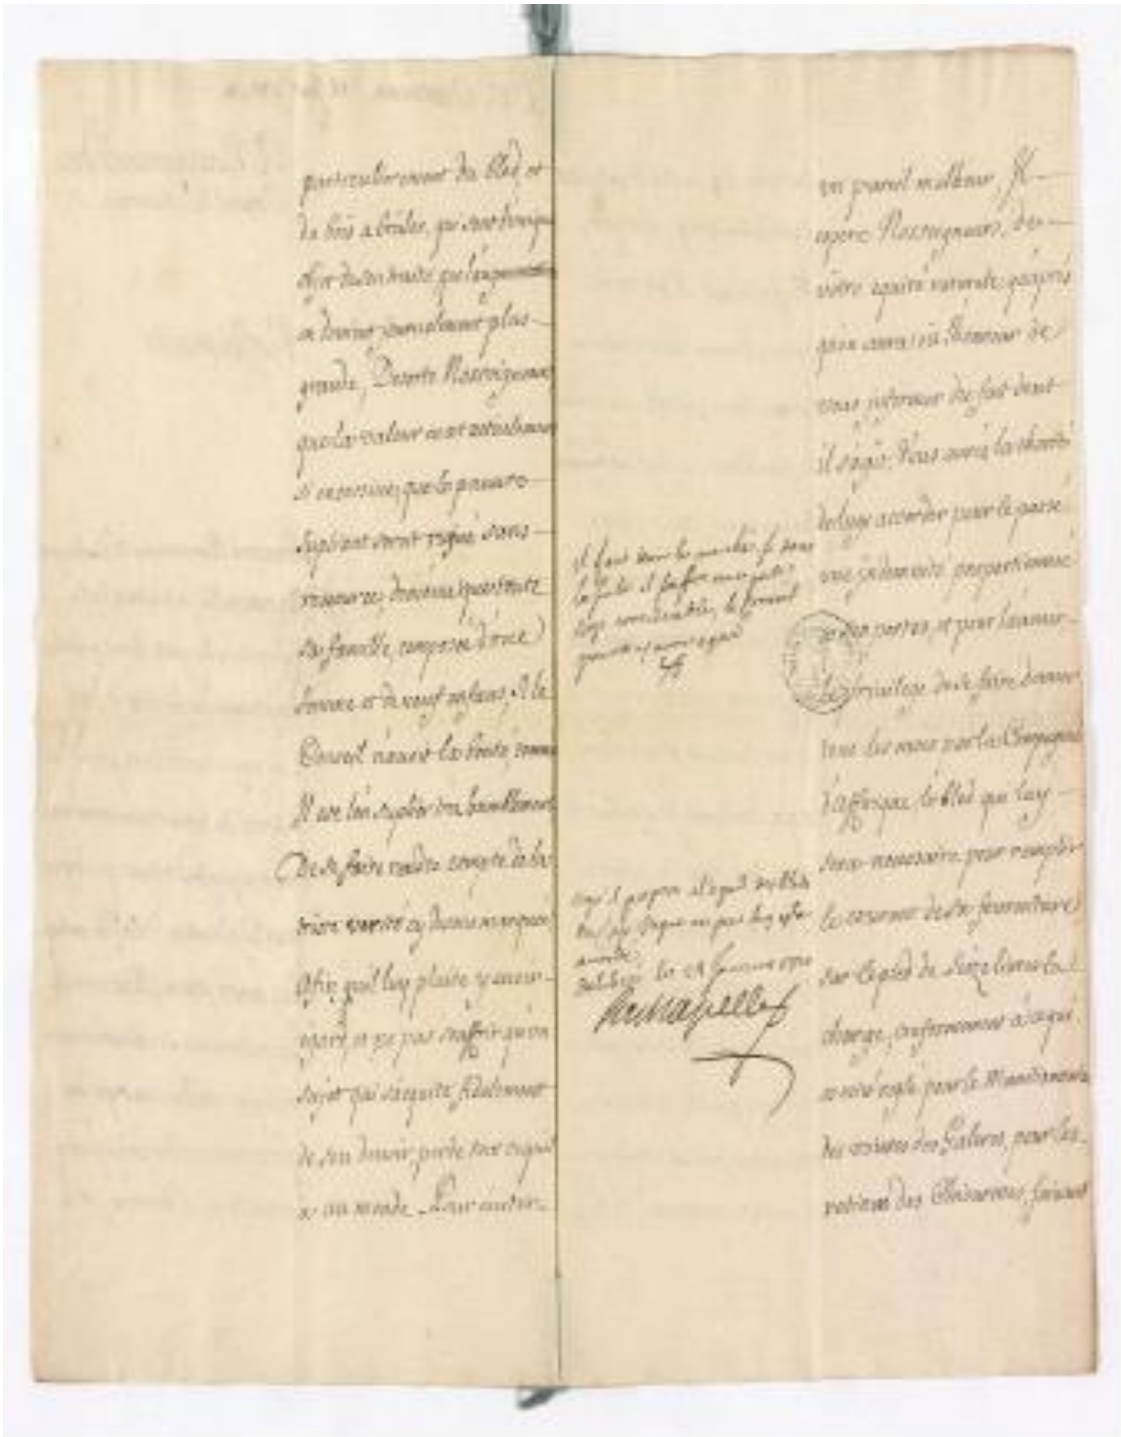 particulierement du bled, et
du bois a bruler, qui sont l'unique
objet de son traité, que l'augmentation
en devient journelement plus
grande, De sorte Nosseigneurs
que la valeur en est actuellement
si excessive, que le pauvre
supliant seroit ruiné sans
ressource, de mesme que toute
sa famille, composée d'une
femme et de neuf enfans, si le
Conseil n'avoit la bonté, comme
Il ose l'en suplier tres humblement
De se faire rendre compte de la
verité cy dessus marquée,
Afin qu'il luy plaise y avoir
egard, et ne pas souffrir qu'un
sujet qui s'acquite fidelement
de son devoir, perde tout ce qu'il
a au monde. Pour eviter
Il faut
la suite il souffre une perte
trop considerable, le Conseil
pourra y avoir egard
a l'egard du bled
ne peut luy estre
accordé.
janvier
un pareil malheur, Il
espere Nosseigneurs, de
vôtre equité naturele, qu'aprés
qu'on aura eu l'honneur de
vous informer du fait dont
il s'agit, Vous aurés la charité
de luy accorder pour le passé
une indemnité proportionnée
a ses pertes, et pour l'avenir
le privilege de se faire donner
tous les mois par la Compagnie
d'Affrique, le bled qui luy
sera necessaire pour remplir
le courant de sa fourniture
sur le pied de seize livres la
charge, conformement à ce qui
a esté reglé pour le Munitionnaire
des vivres des Galeres, pour les
rations des Chiourmes, faisant